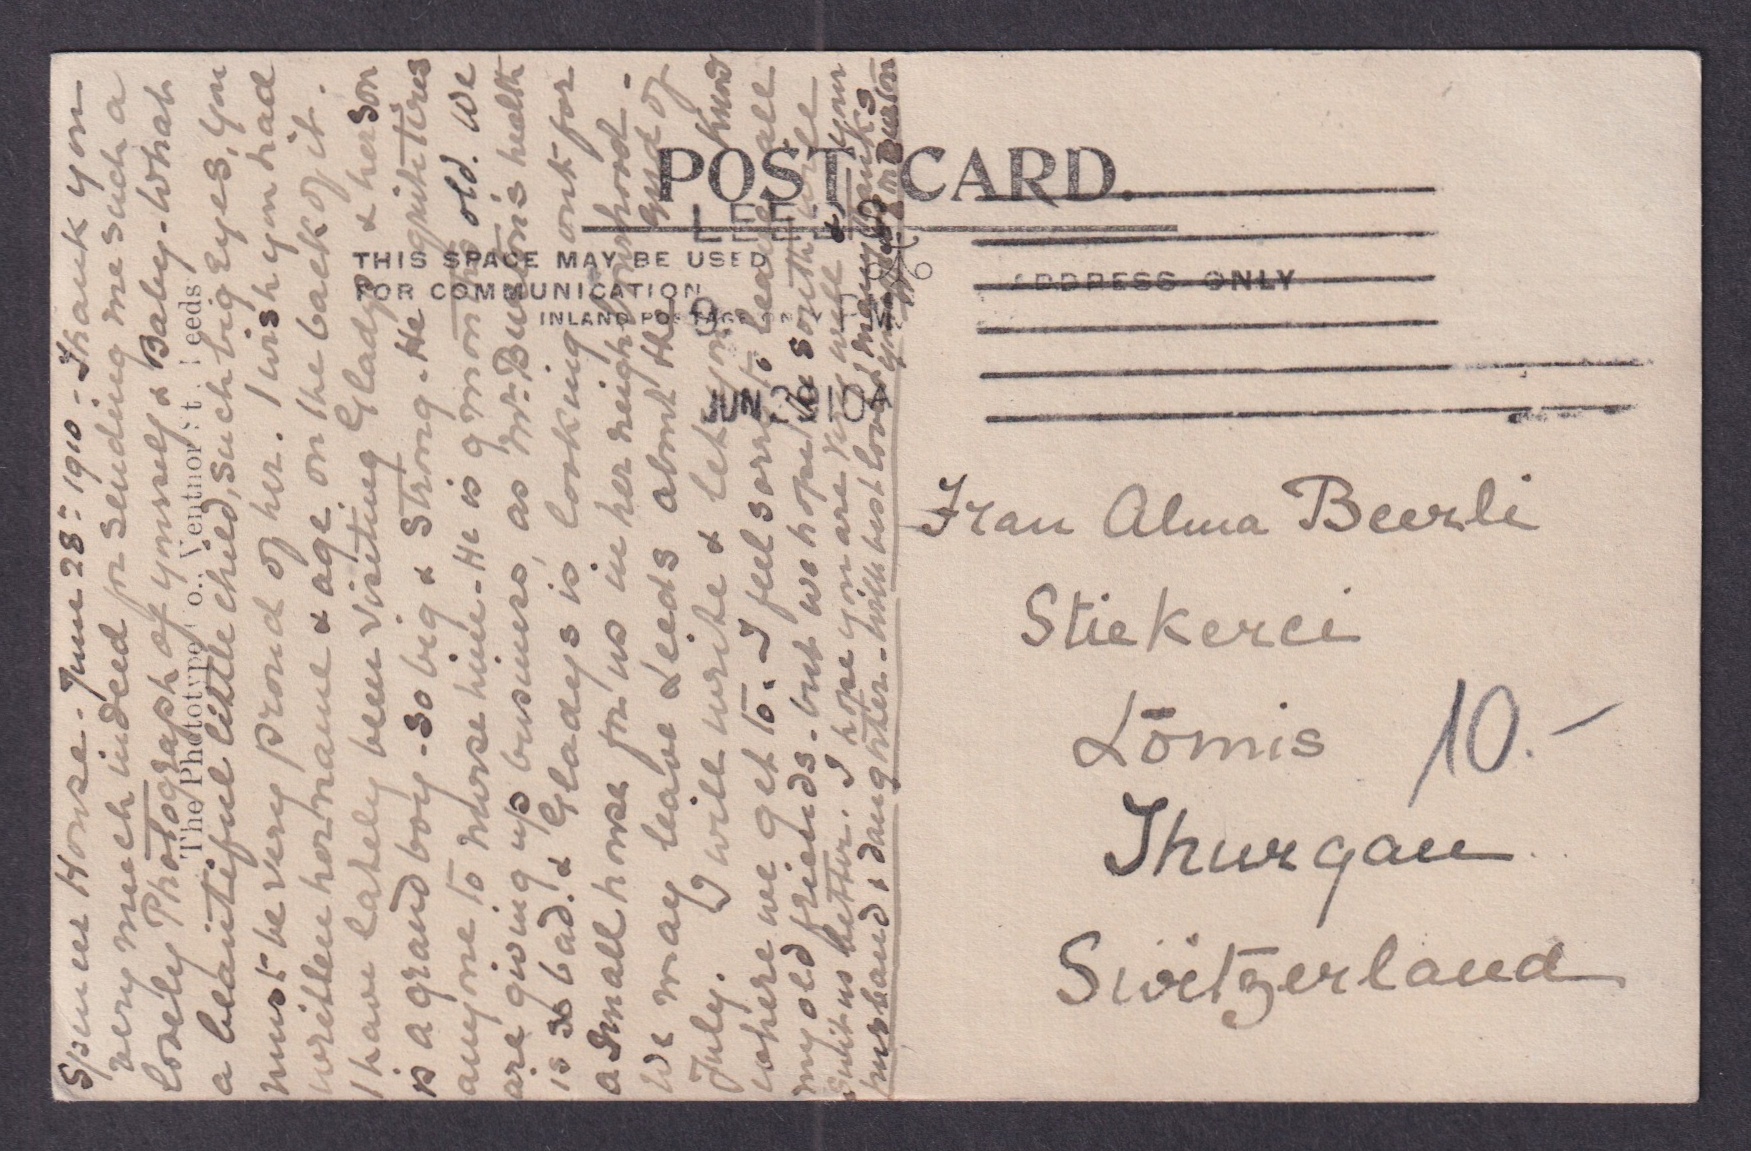 POST CARD.
THIS SPACE MAY BE USED
FOR COMMUNICATION
INLAND POSTAGE ONLY
ADDRESS ONLY
LEEDS
9 PM
JUN
10
The Phototype Co. Ventnor St. Leeds
House - June 28: 1910 - Thank you
very much indeed for sending me such a
lovely Photograph of yourself & Baby - what
a beautiful little child, such big eyes, you
must be very proud of her. I wish you had
written her name & age on the back of it.
I have lately been visiting Gladys & her son
is a grand boy - so big & strong - He
anyone to nurse him - He is 9 months old. We
are giving up business, as Mr. health
is so bad. & Gladys is looking out for
a small house for us in her neighbourhood -
We may leave Leeds about the end of
July. I will write & let you know
where we get to. I feel sorry to leave all
my old friends - but we hope the south will
suit us better. I hope you are very well & your
husband & daughter - with best love & many thanks
Frau Alma Beerli
Stickerei
Lömis
Thurgau
Switzerland
10.-